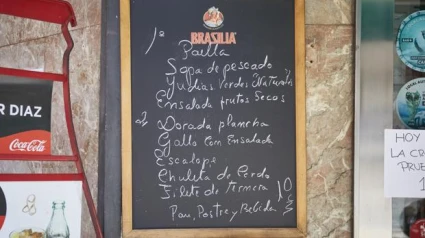 BRASILIA
1º
Paella
Sopa de pescado
Judias Verdes Natural
Ensalada frutos Secos
2º
Dorada plancha
Gallo con Ensalada
Escalope
Chuleta de Cerdo
Filete de Ternera
10
Pan, Postre y Bebida
R DIAZ
Coca-Cola
HOY
LA CR
PRUE
1